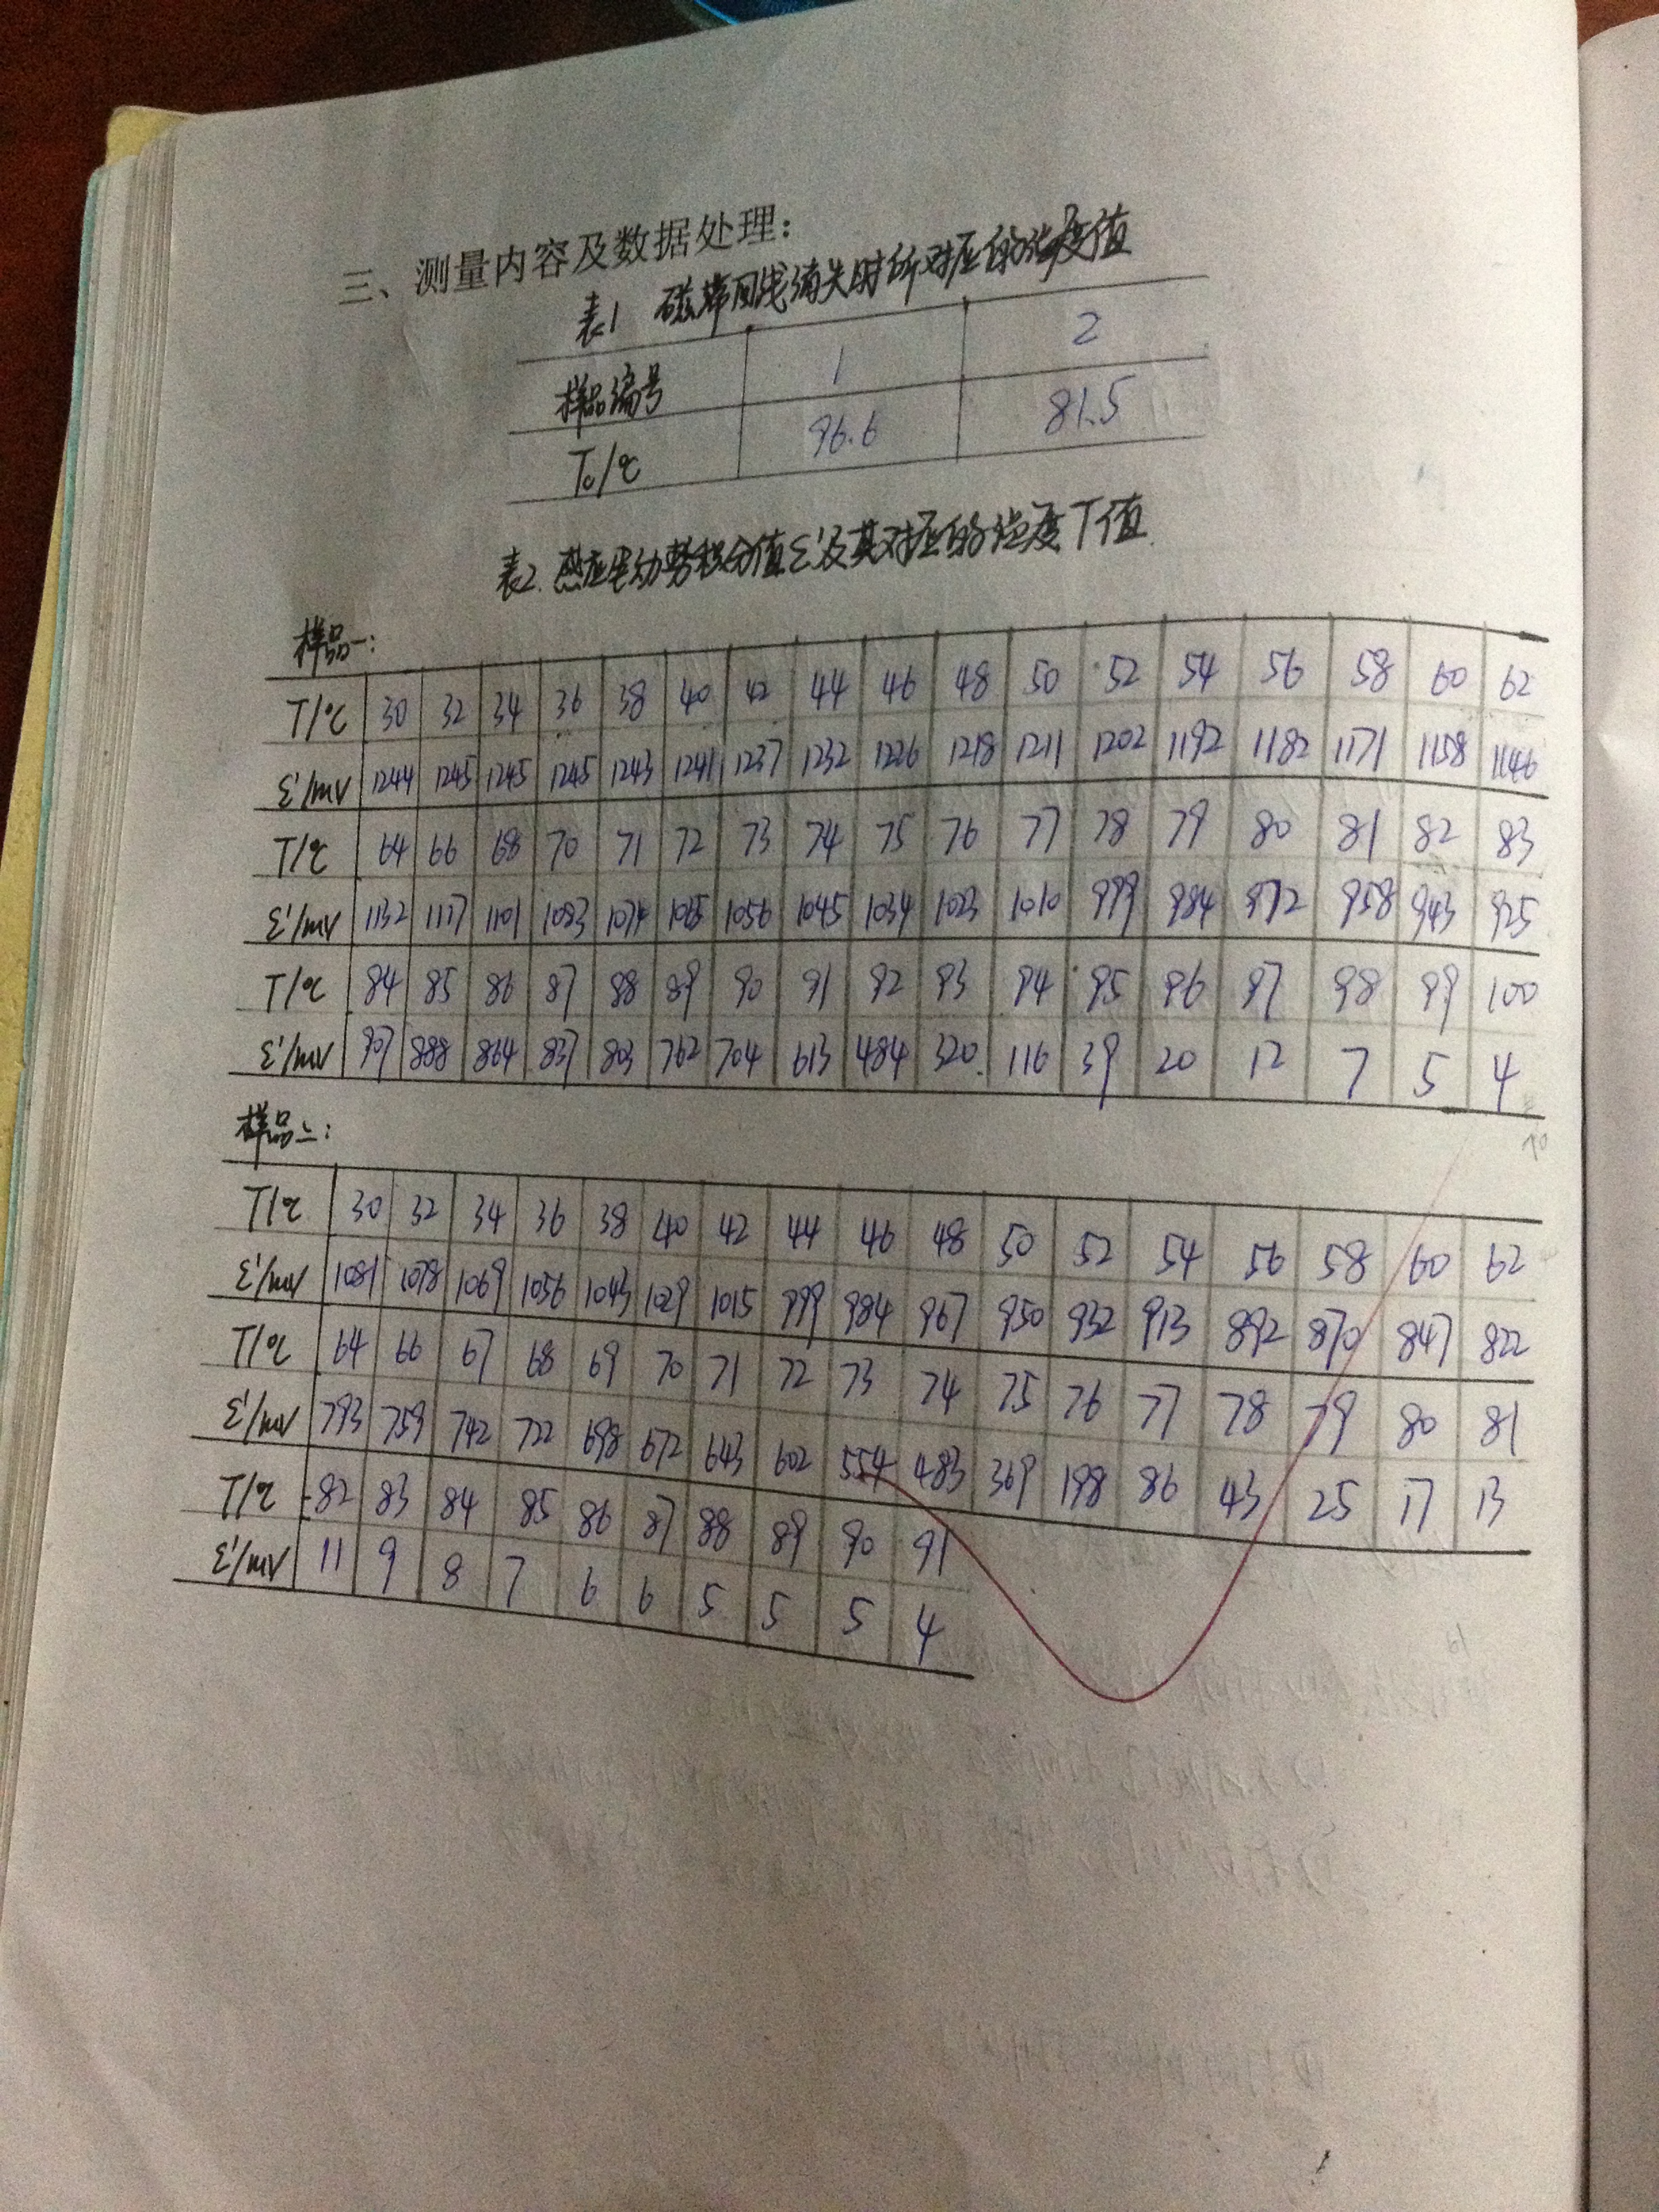 三、测量内容及数据处理：
表1 磁滞回线消失时所对应的温度值
样品编号 1 2
Tc/℃ 96.6 81.5
表2. 感应电动势积分值ε'及其对应的温度T值.
样品一：
T/℃ 30 32 34 36 38 40 42 44 46 48 50 52 54 56 58 60 62
ε'/mV 1244 1245 1245 1245 1243 1241 1237 1232 1226 1218 1211 1202 1192 1182 1171 1158 1146
T/℃ 64 66 68 70 71 72 73 74 75 76 77 78 79 80 81 82 83
ε'/mV 1132 1117 1101 1083 1074 1065 1056 1045 1034 1023 1010 999 984 972 958 943 925
T/℃ 84 85 86 87 88 89 90 91 92 93 94 95 96 97 98 99 100
ε'/mV 907 888 864 837 803 762 704 613 484 320 116 39 20 12 7 5 4
样品二：
T/℃ 30 32 34 36 38 40 42 44 46 48 50 52 54 56 58 60 62
ε'/mV 1081 1078 1069 1056 1043 1029 1015 999 984 967 950 932 913 892 870 847 822
T/℃ 64 66 67 68 69 70 71 72 73 74 75 76 77 78 79 80 81
ε'/mV 793 759 742 722 698 672 643 602 554 483 369 198 86 43 25 17 13
T/℃ 82 83 84 85 86 87 88 89 90 91
ε'/mV 11 9 8 7 6 6 5 5 5 4